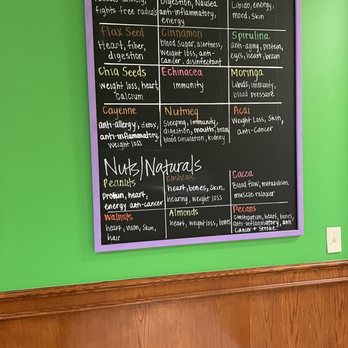 fights free radicals
Digestion, Nausea
anti-inflammatory,
energy
Libido, energy,
mood, skin
Flax Seed
heart, fiber,
digestion
Cinnamon
blood sugar, alertness,
weight loss, anti-
cancer, disinfectant
Spirulina
anti-aging, protein,
eyes, heart, brain
Chia Seeds
weight loss, heart
calcium
Echinacea
immunity
Moringa
Libido, immunity,
blood pressure
Cayenne
anti-allergy, detox,
anti-inflammatory,
weight loss
Nutmeg
Sleeping, immunity,
digestion, mouth, brain,
blood circulation, kidney
Acai
Weight Loss, Skin,
Anti-Cancer
Nuts/Naturals
Peanuts
Protein, heart,
energy anti-cancer
Cashews
heart, bones, skin,
hearing, weight loss
Cacca
Blood flow, metabolism
muscle relaxer
Walnuts
heart, skin,
hair
Almonds
heart, weightloss, bones
Pecans
constipation, heart, bones,
anti-inflammatory, anti
cancer & stroke